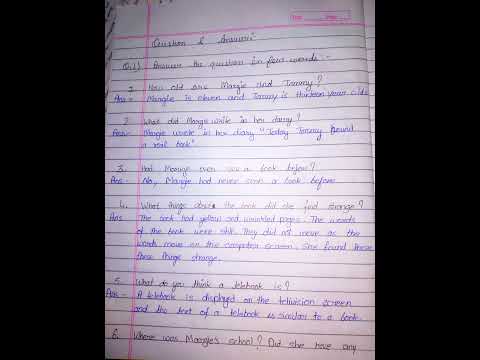 Question & Answers:-
Q.1) Answer the question in few words :-
1. How old are Margie and Tommy?
Ans:- Margie is eleven and Tommy is thirteen year olds.
2. What did Margie write in her diary?
Ans:- Margie wrote in her diary "Today Tommy found
a real book"
3. Had Margie ever see a book before?
Ans:- No, Margie had never seen a book before
4. What things about the book did she find strange?
Ans The book had yellow and wrinkled pages. The words
of the book were still. They did not move as the
words move on the computer screen. She found these
these things strange.
5. What do you think a telebook is?
Ans:- A telebook is displayed on the television screen
and the text of a telebook is similar to a book.
6. Where was Margie's school? Did she have any